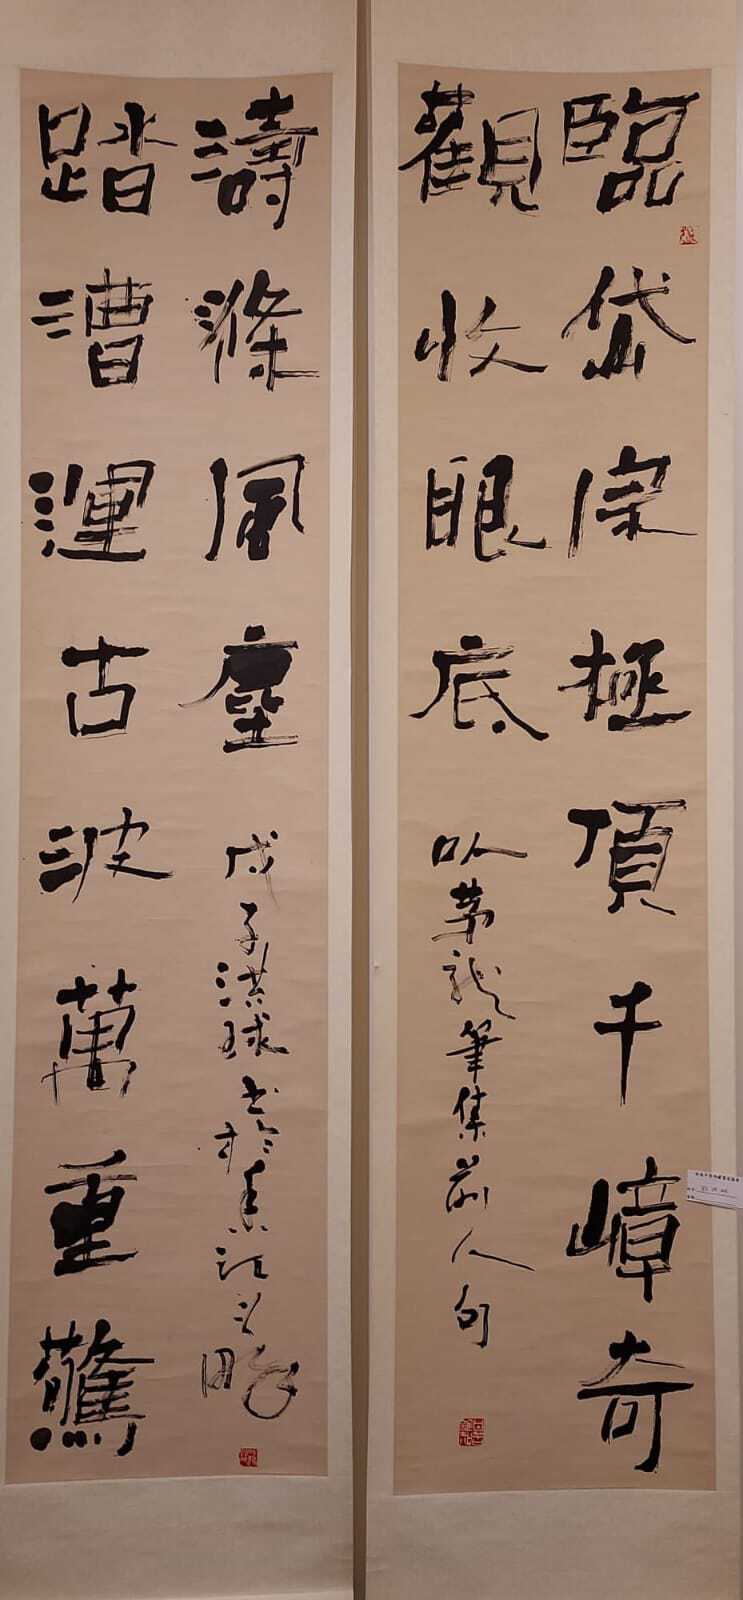 臨岱宗極頂千嶂奇
觀收眼底
以茅龍筆集前人句
踏漕運古波萬重驚
濤滌風塵
戊子洪球書於香江之